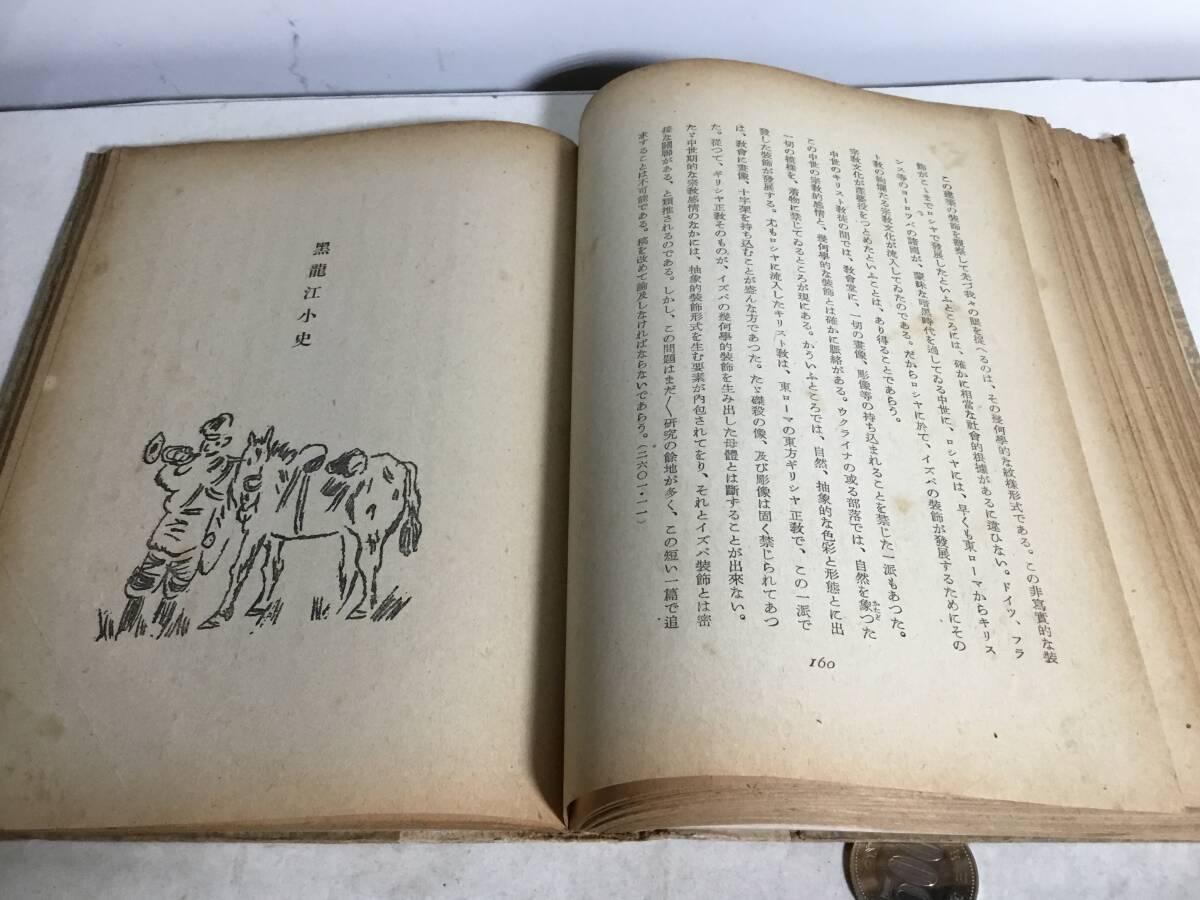 この建築の裝飾を觀察して先づ我々の眼を捉へるのは、その幾何學的な紋樣形式である。この非寫實的な裝
飾がこゝまでロシヤで發展したといふところには、確かに相當な社會的根據があるに違ひない。ドイツ、フラ
ンス等のヨーロツパの諸國が、蒙昧な暗黑時代を過してゐる中世に、ロシヤには、早くも東ローマからキリス
ト敎の絢爛たる宗敎文化が流入してゐたのである。だからロシヤに於て、イズバの裝飾が發展するためにその
宗敎文化が產婆役をつとめたといふことは、あり得ることであらう。
中世のキリスト敎徒の間では、敎會堂に、一切の畫像、彫像等の持ち込まれることを禁じた一派もあつた。
この中世の宗敎的感情と、幾何學的な裝飾とは確かに脈絡がある。ウクライナの或る部落では、自然を象つた
かたど
一切の模樣を、着物に禁じてゐるところが現にある。かういふところでは、自然、抽象的な色彩と形態とに出
發した裝飾が發展する。尤もロシヤに流入したキリスト敎は、東ローマの東方ギリシヤ正敎で、この一派で
は、敎會に畫像、十字架を持ち込むことが盛んな方であつた。たゞ磔殺の像、及び彫像は固く禁じられてあつ
た。從つて、ギリシヤ正敎そのものが、イズバの幾何學的裝飾を生み出した母體とは斷ずることが出來ない。
たゞ中世期的な宗敎感情のなかには、抽象的裝飾形式を生む要素が內包されてをり、それとイズバ裝飾とは密
接な關聯がある、と類推されるのである。しかし、この問題はまだ〱硏究の餘地が多く、この短い一篇で追
求することは不可能である。稿を改めて論及しなければならないであらう。（二六〇一・一一）
160
黑龍江小史